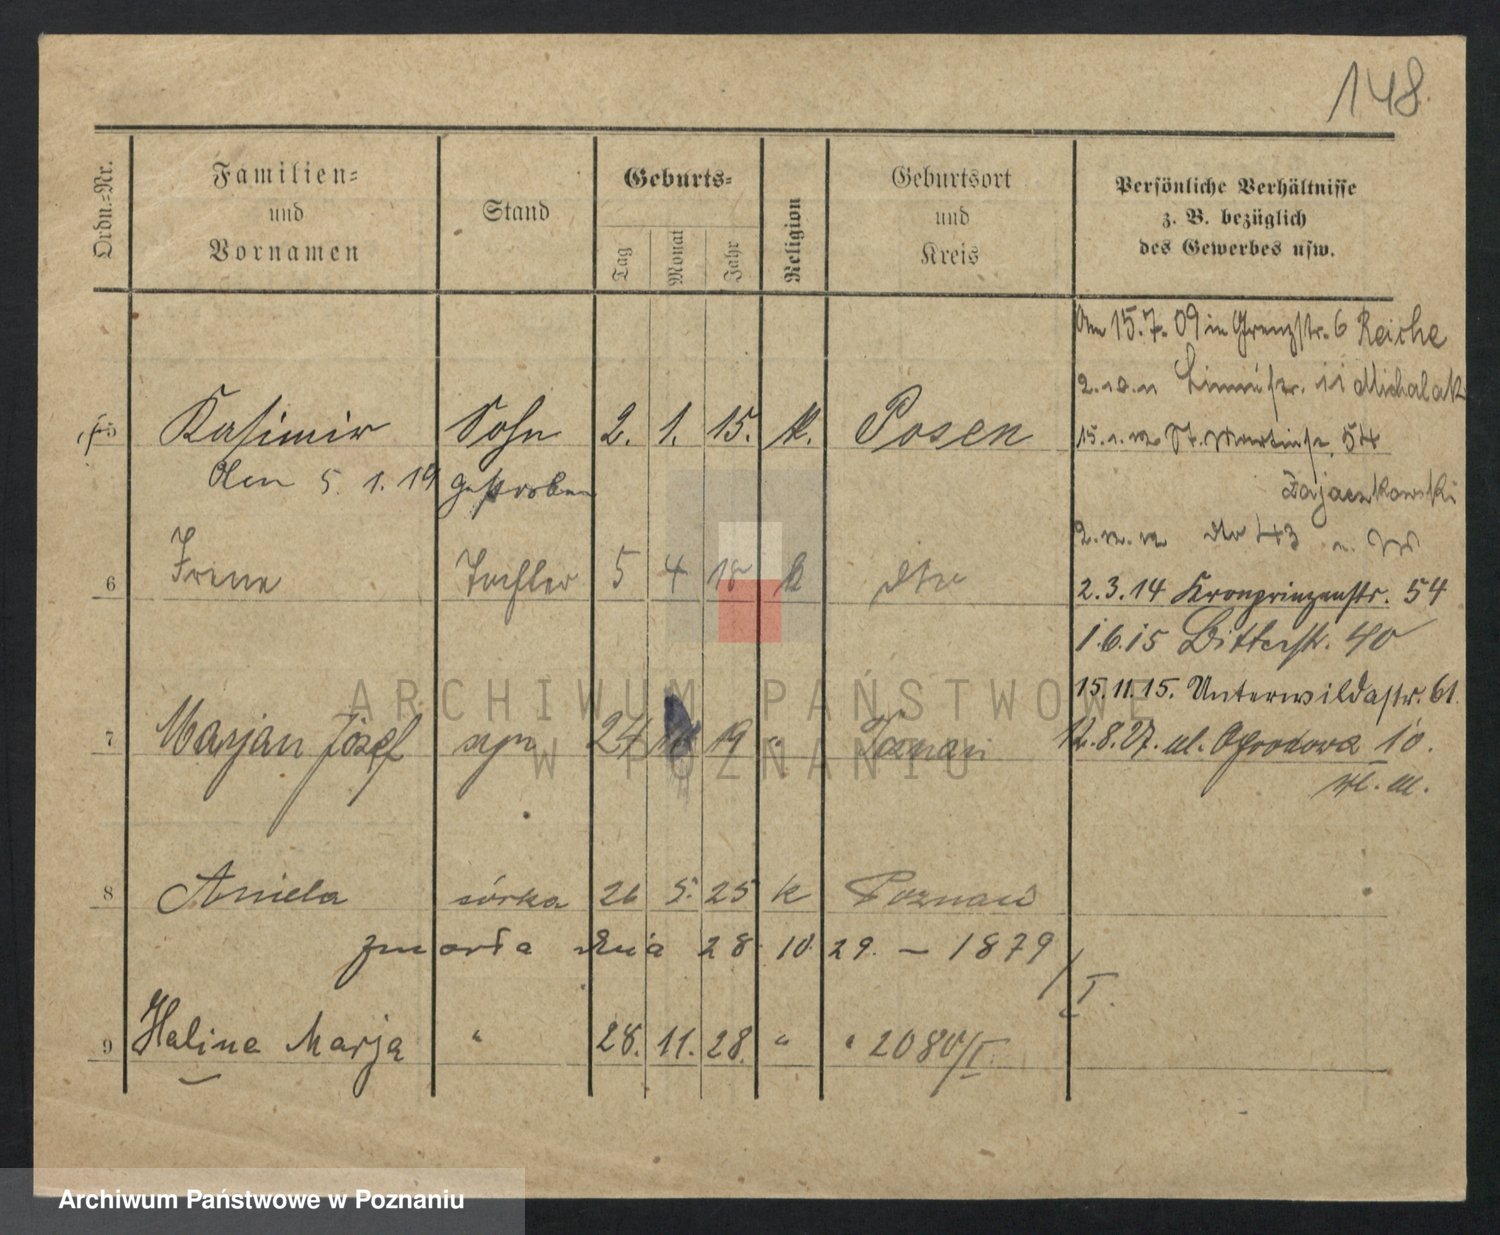 148.
Ordn.-Nr.
Familien-
und
Vornamen
Stand
Geburts-
Tag
Monat
Jahr
Religion
Geburtsort
und
Kreis
Persönliche Verhältnisse
z. B. bezüglich
des Gewerbes usw.
Am 15.7.09 in Grenzstr. 6 Reiche
11 Michalak
5 Kasimir Sohn 2. 1. 15. k. Posen
54
den 5. 1. 19 gestorben
Zajaczkowski
43
6 Irene Tochter 5 4 18 k dto
2.3.14 Kronprinzenstr. 54
1.6.15 Bitterstr. 40
15.11.15. Unterwildastr. 61.
7 Marjan Józef syn 24 10 19 " Poznań
12.8.27. ul. Ogrodowa 10.
8 Aniela córka 26 5. 25 k Poznań
zmarła dnia 28 10. 29. – 1879/I.
9 Halina Marja " 28. 11. 28. " " 2080/I.
ARCHIWUM PAŃSTWOWE
W POZNANIU
Archiwum Państwowe w Poznaniu